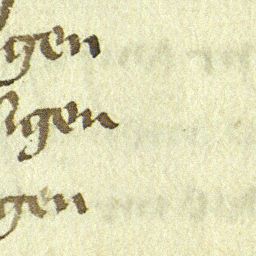 gen
igen
gen